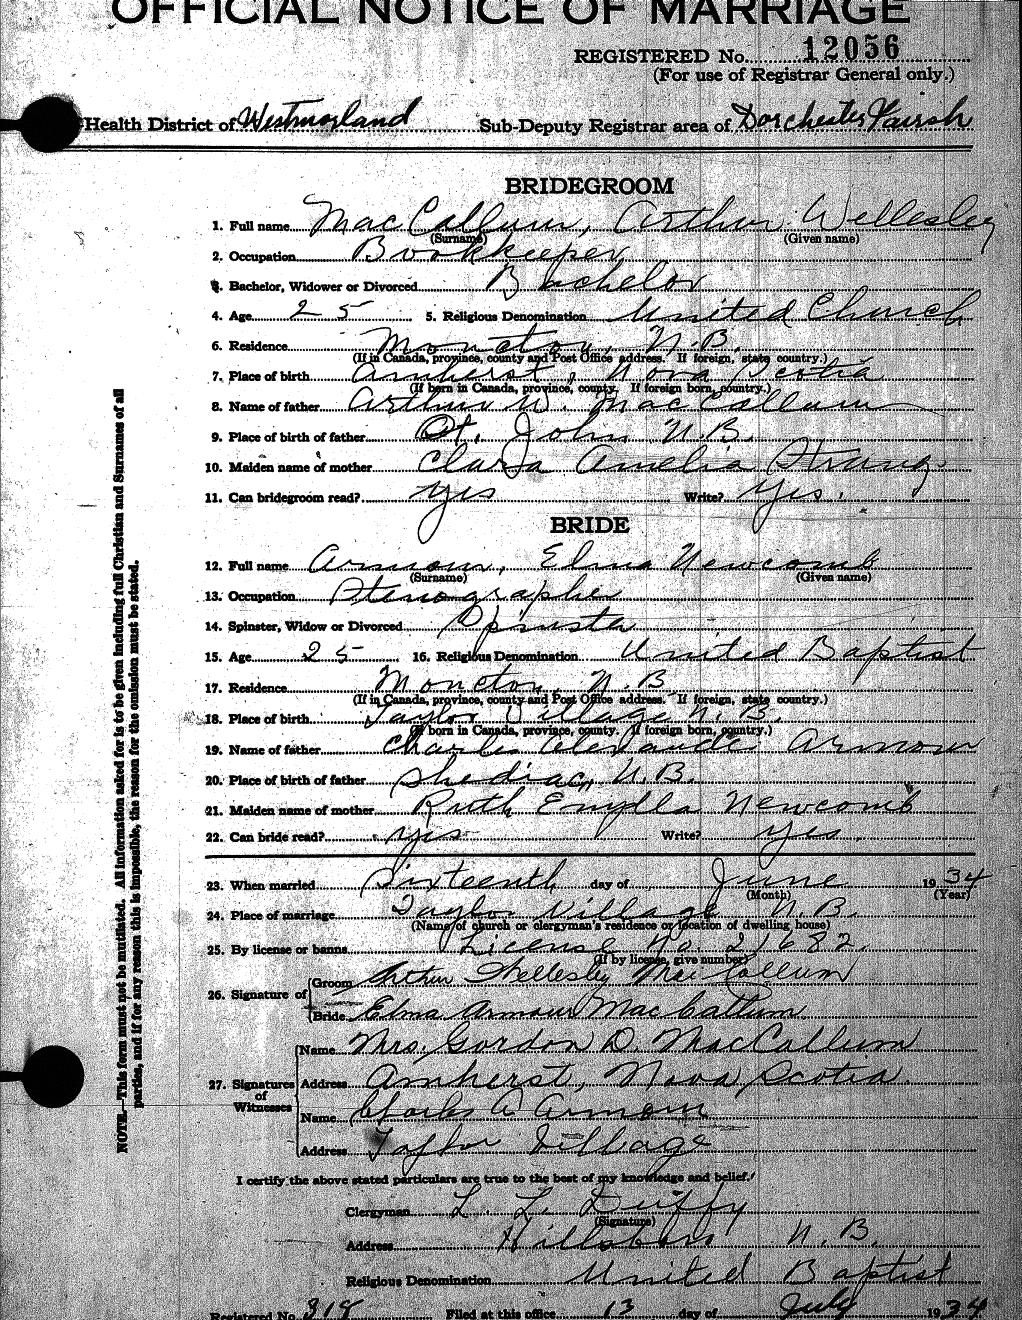 OFFICIAL NOTICE OF MARRIAGE
REGISTERED No. 12056
(For use of Registrar General only.)
Health District of Westmorland Sub-Deputy Registrar area of Dorchester Parish
BRIDEGROOM
1. Full name MacCallum, Arthur Wellesley
(Surname) (Given name)
2. Occupation Bookkeeper
3. Bachelor, Widower or Divorced Bachelor
4. Age 25 5. Religious Denomination United Church
6. Residence Moncton, N.B.
(If in Canada, province, county and Post Office address. If foreign, state country.)
7. Place of birth Amherst, Nova Scotia
(If born in Canada, province, county. If foreign born, country.)
8. Name of father Arthur W. MacCallum
9. Place of birth of father St. John N.B.
10. Maiden name of mother Clara Amelia Strang
11. Can bridegroom read? yes Write? yes.
BRIDE
12. Full name Armour, Elma Newcomb
(Surname) (Given name)
13. Occupation Stenographer
14. Spinster, Widow or Divorced Spinster
15. Age 25 16. Religious Denomination United Baptist
17. Residence Moncton, N.B
(If in Canada, province, county and Post Office address. If foreign, state country.)
18. Place of birth Taylor Village N.B.
(If born in Canada, province, county. If foreign born, country.)
19. Name of father Charles Alexander Armour
20. Place of birth of father Shediac, N.B.
21. Maiden name of mother Ruth Newcomb
22. Can bride read? yes Write? yes
23. When married Sixteenth day of June 1934
(Month) (Year)
24. Place of marriage Taylor Village N.B.
(Name of church or clergyman's residence or location of dwelling house)
25. By license or banns License No. 21682.
(If by license, give number)
26. Signature of Groom Arthur Wellesley MacCallum
Bride Elma Armour MacCallum
27. Signatures of Witnesses Name Mrs. Gordon D. MacCallum
Address Amherst, Nova Scotia
Name Charles A Armour
Address Taylor Village
I certify the above stated particulars are true to the best of my knowledge and belief.
Clergyman L. L. Duffy
(Signature)
Address Hillsboro N.B.
Religious Denomination United Baptist
Registered No. 318 Filed at this office 13 day of July 1934
NOTE.—This form must not be mutilated. All information asked for is to be given including full Christian and Surnames of all
parties, and if for any reason this is impossible, the reason for the omission must be stated.